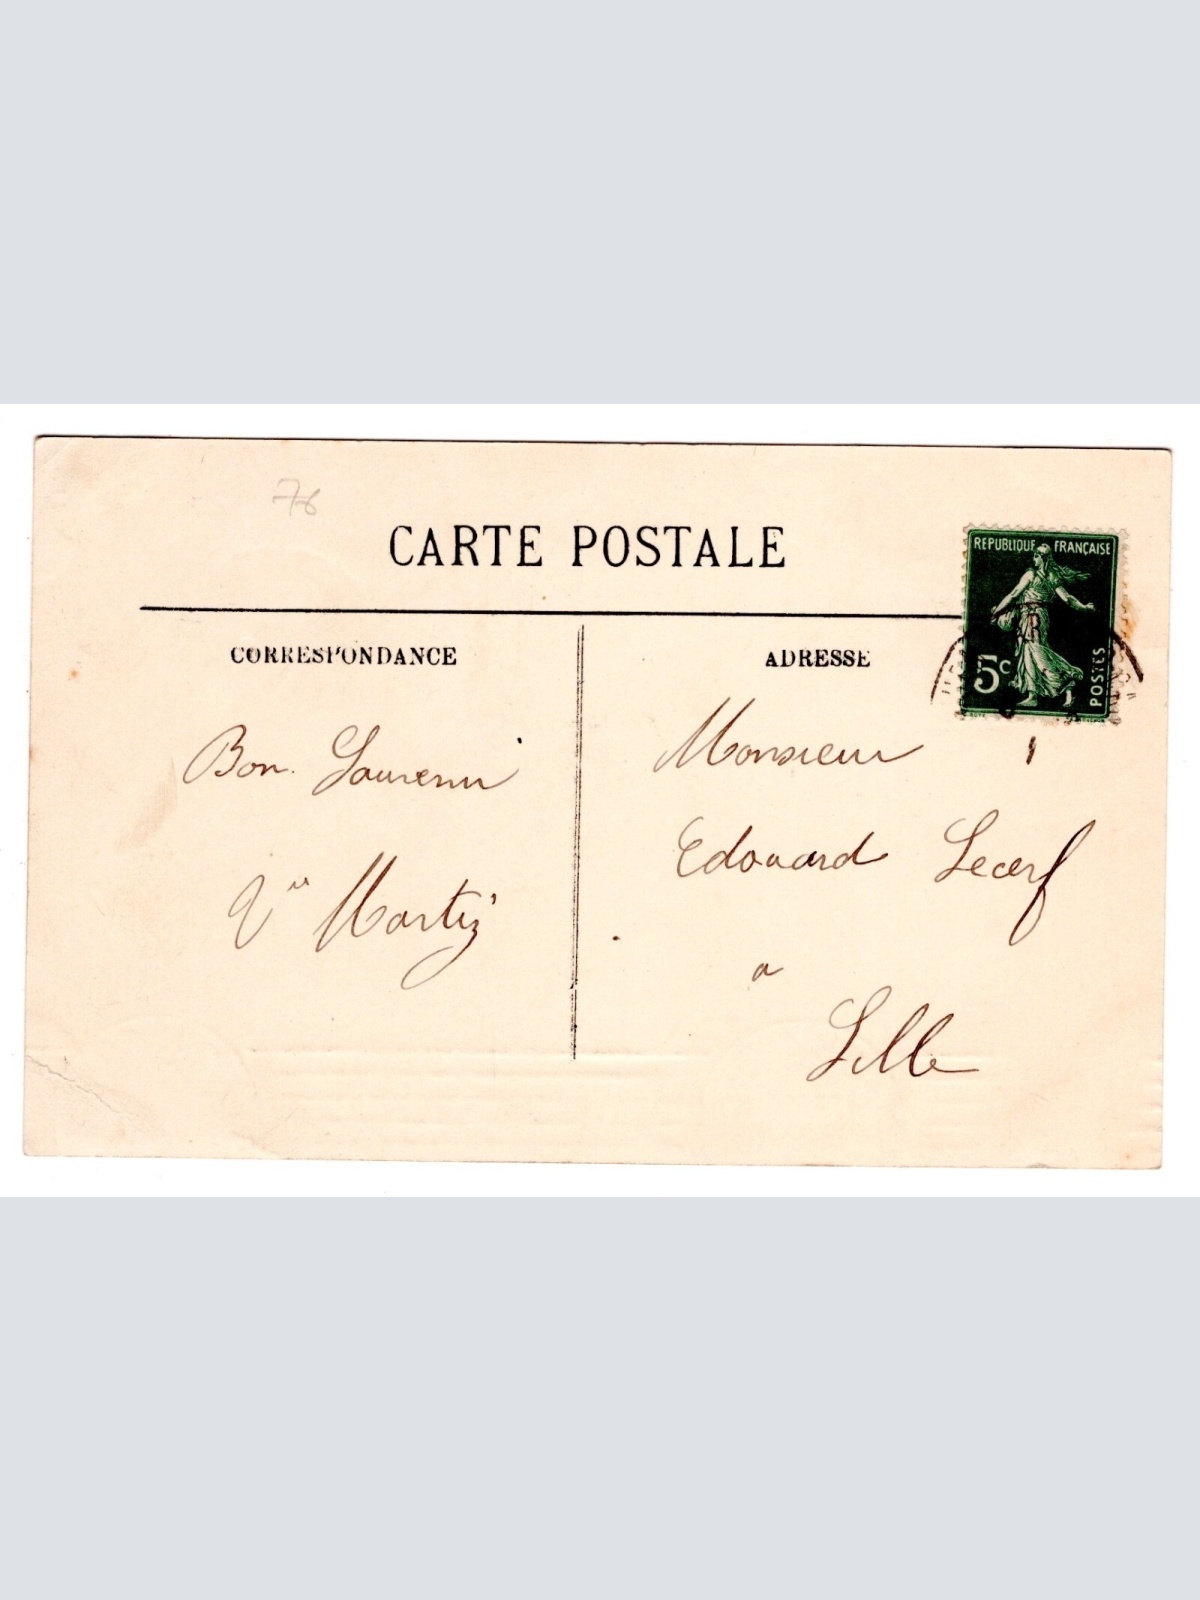 76
CARTE POSTALE
REPUBLIQUE FRANÇAISE
5c
POSTES
CORRESPONDANCE
ADRESSE
Bon Souvenir
Monsieur
Edouard Lecerf
à
Lille